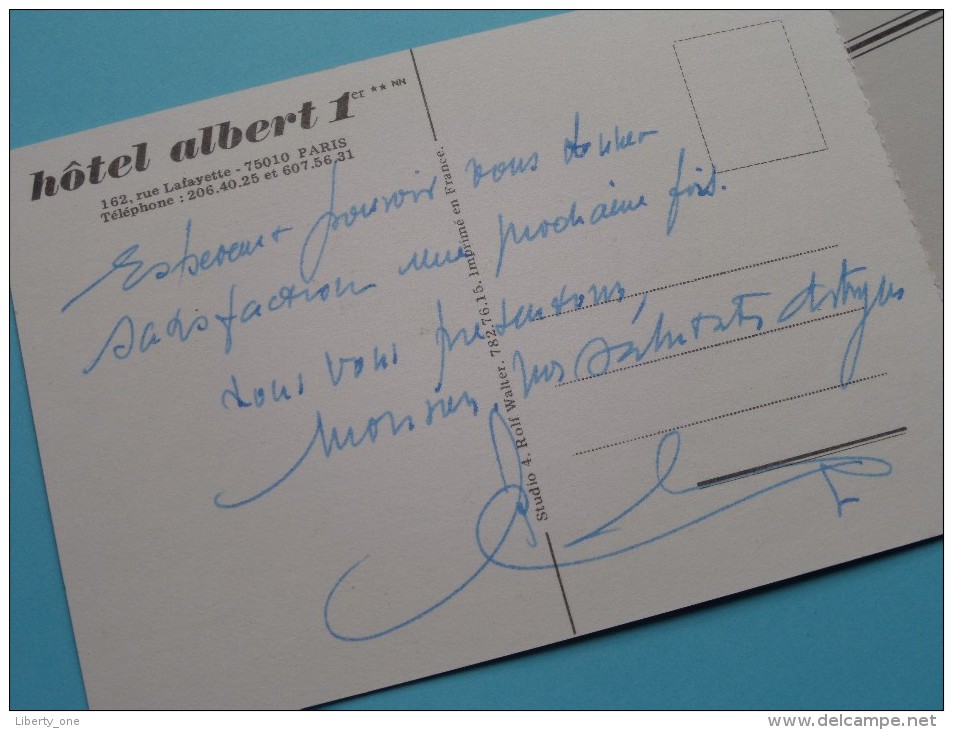 hôtel albert 1er ★★ NN
162, rue Lafayette - 75010 PARIS
Téléphone : 206.40.25 et 607.56.31
Esperant pouvoir vous donner
satisfaction une prochaine fois.
nous vous presentons,
Monsieur, nos salutations
Studio 4. Rolf Walter. 782.76.15. Imprimé en France.
Liberty_one
www.delcampe.net